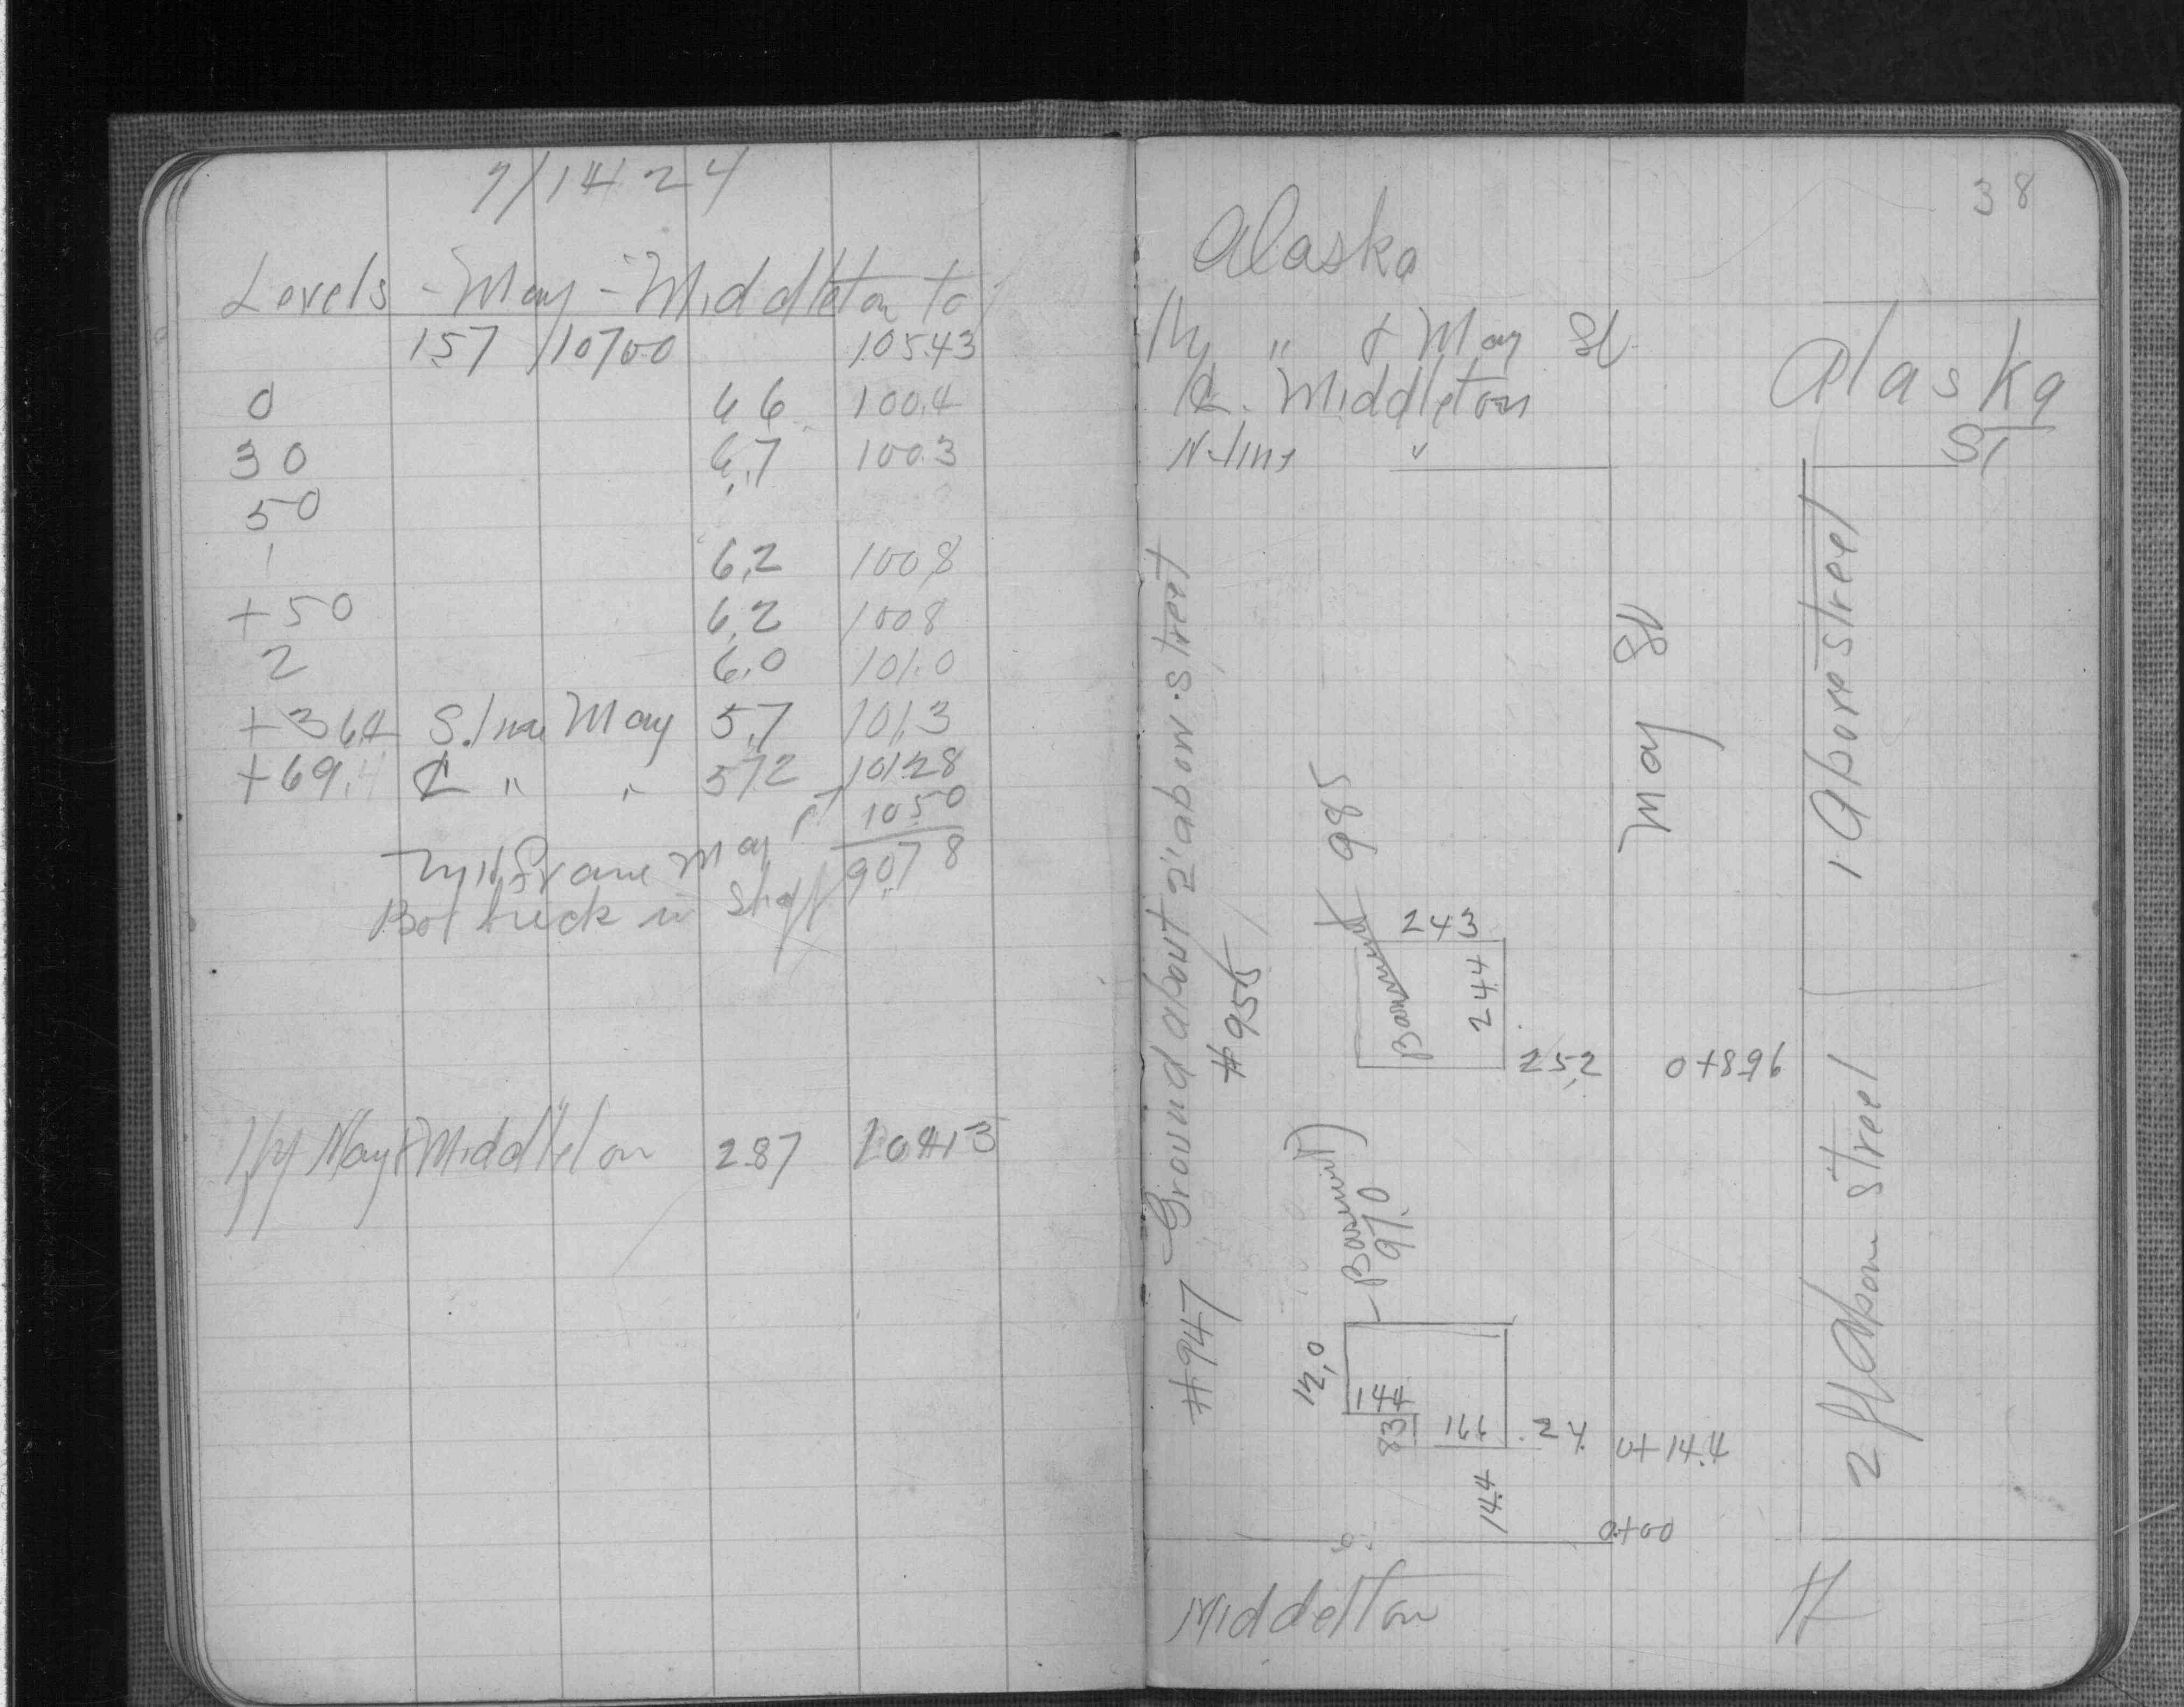 7/14/24
Levels - May - Middleton to
1.57 107.00 105.43
0 6.6 100.4
30 6.7 100.3
50
1 6.2 100.8
+50 6.2 100.8
2 6.0 101.0
+36.4 S. line May 5.7 101.3
+69.4 ₵ " " 5.72 101.28
10.50
Frame May
Bot brick in Shaft 90.78
May & Middleton 2.87 104.13
38
Alaska
" & May St
₵ Middleton
N-line "
Alaska
St
May St
1 Above street
2 ft above street
#947 Ground about 2' above street
#955
Basement 98.5
Basement
24.3
24.4
25.2 0+89.6
Basement
97.0
12.0
14.4
8.3
16.6 24. 0+14.4
14.4
0+00
Middelton